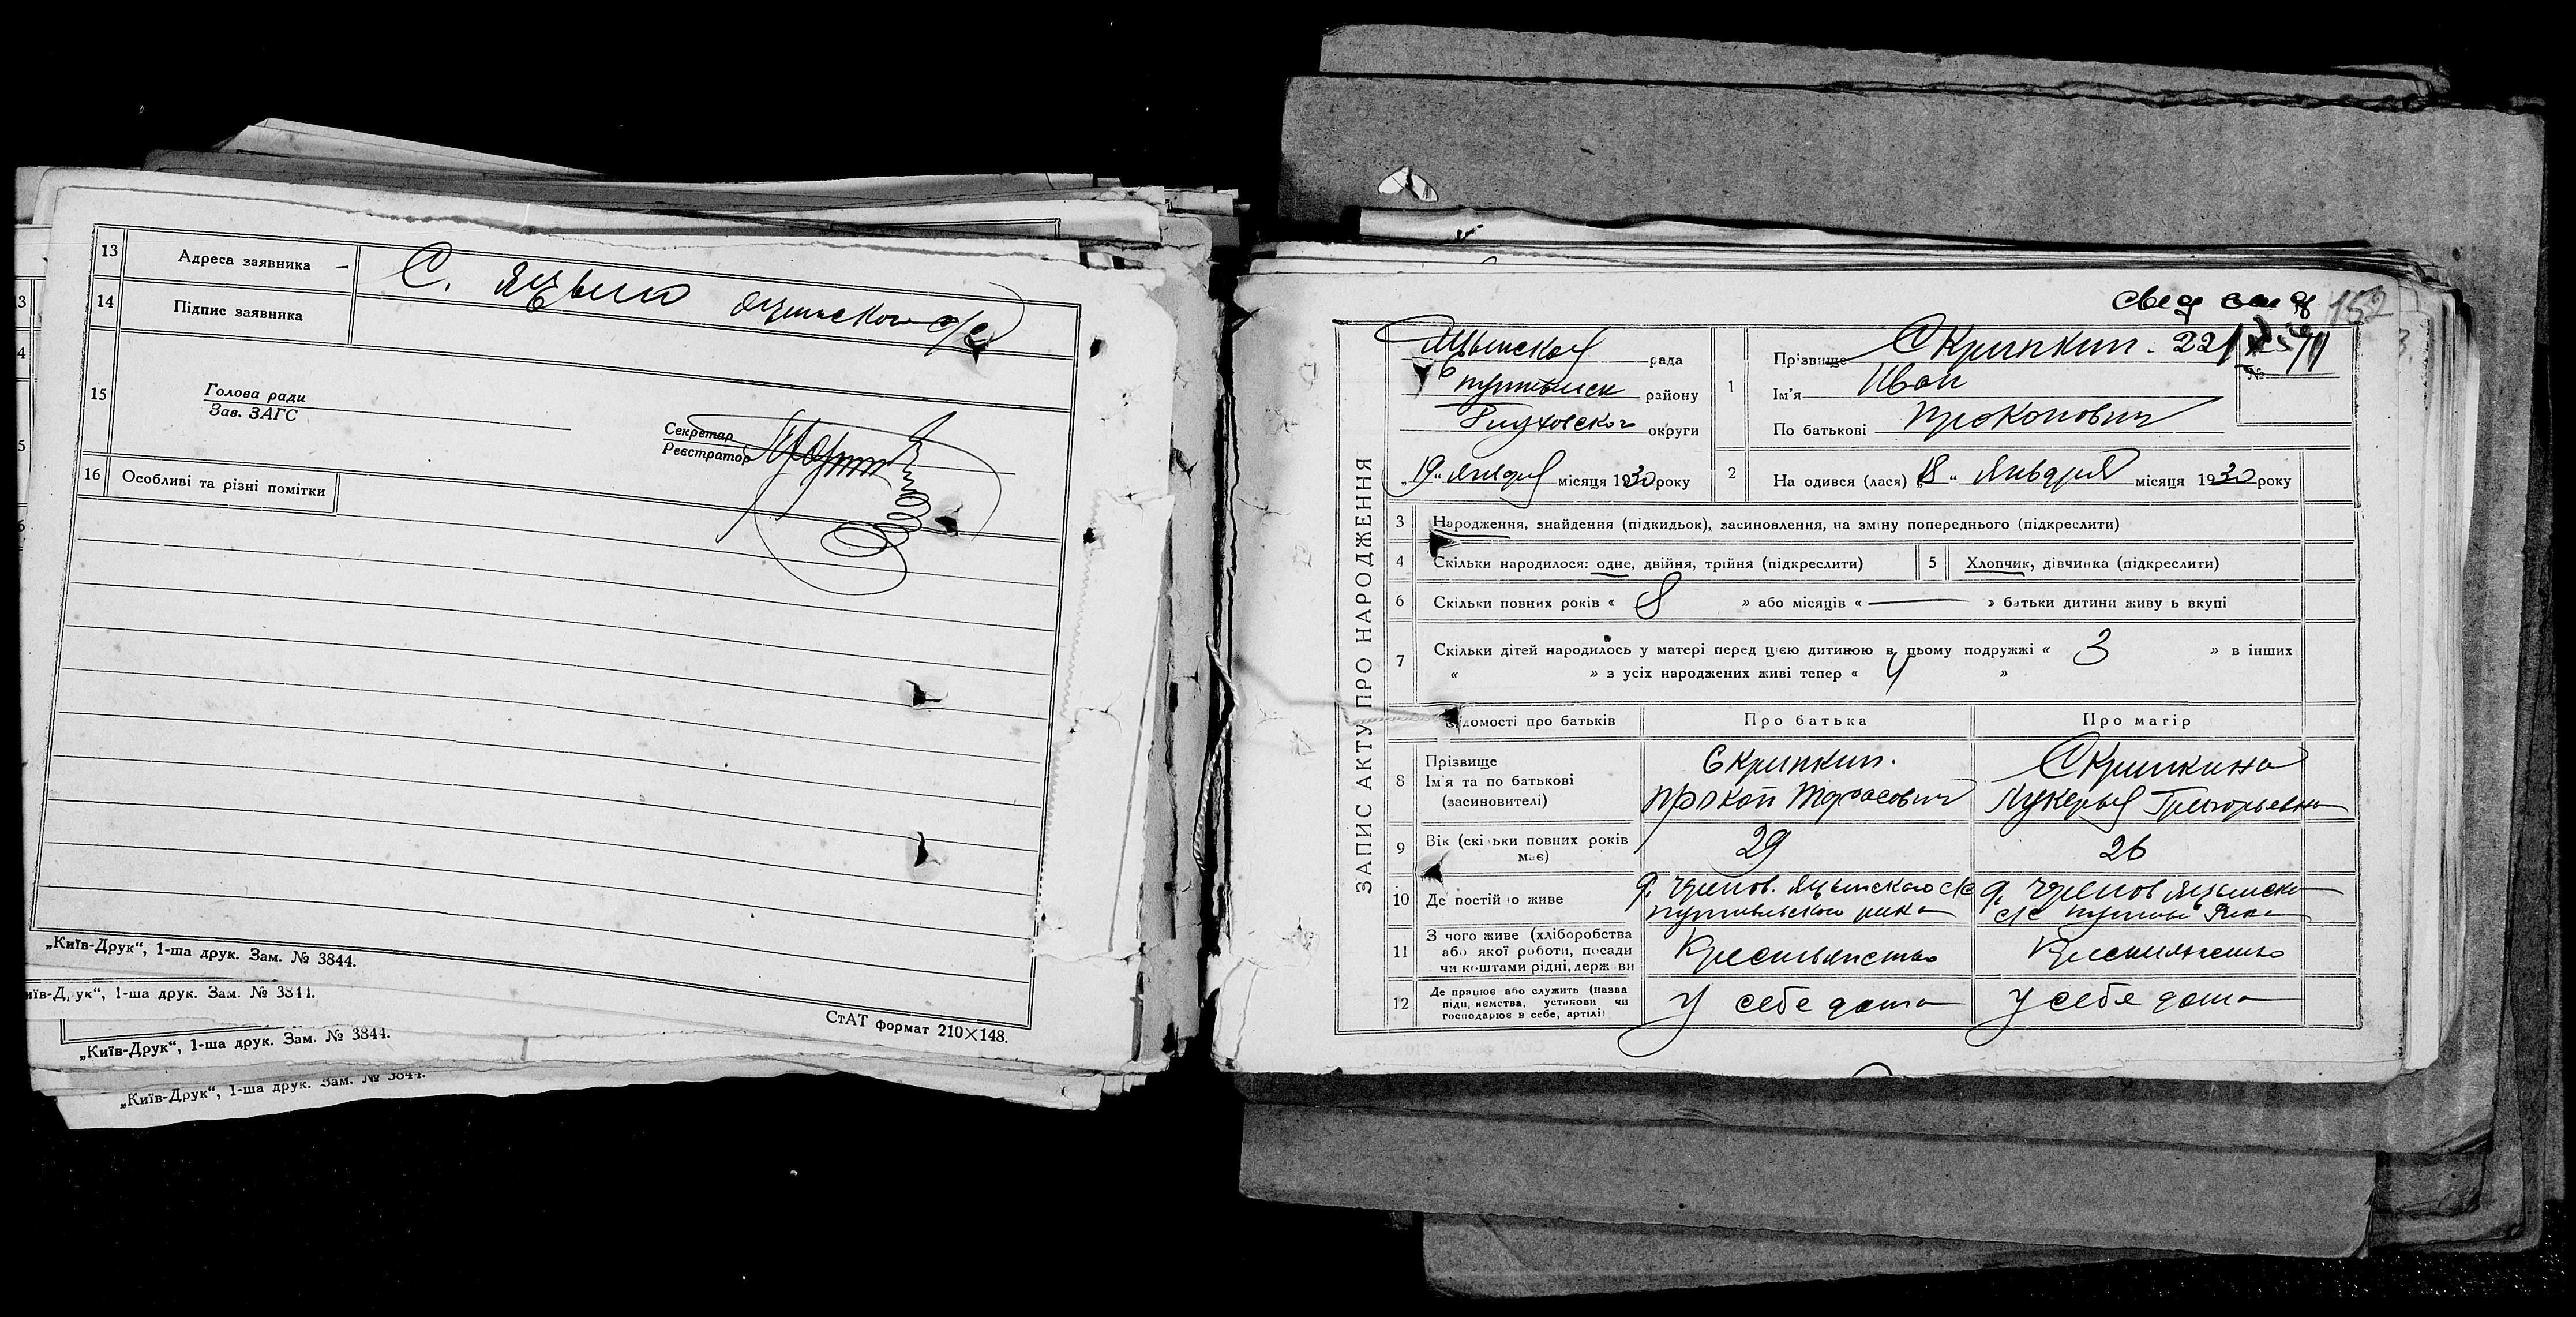 13 Адреса заявника С. Яцыно Яцынского с/с
14 Підпис заявника
15 Голова ради
Зав. ЗАГС
Секретар
Реєстратор
16 Особливі та різні помітки
„Київ-Друк“, 1-ша друк. Зам. № 3844.
СтАТ формат 210×148.
иїв-Друк“, 1-ша друк. Зам. № 3841.
„Київ-Друк“, 1-ша друк. Зам. № 3844.
„Київ-Друк“, 1-ша друк. Зам. № 3844.
152
ЗАПИС АКТУ ПРО НАРОДЖЕННЯ
Яцынской рада
Путивльск району
Глуховского округи
„19“ января місяця 1930 року
1 Прізвище Скрипкин. 22
№
Ім'я Иван
По батькові Прокопович
2 На одився (лася) „18“ Января місяця 1930 року
3 Народження, знайдення (підкидьок), засиновлення, на зміну попереднього (підкреслити)
4 Скільки народилося: одне, двійня, трійня (підкреслити)
5 Хлопчик, дівчинка (підкреслити)
6 Скільки повних років « 8 » або місяців « — » батьки дитини живу ь вкупі
7 Скільки дітей народилось у матері перед цією дитиною в цьому подружжі « 3 » в інших
« » з усіх народжених живі тепер « 4 »
Відомості про батьків Про батька Про матір
8 Прізвище
Ім'я та по батькові
(засиновителі)
Скрипкин.
Прокоп Тарасович
Скрипкина
Лукерья Григорьевна
9 Вік (скільки повних років
має)
29
26
10 Де постійно живе
Яцынского с/с
Путивльского рика
11 З чого живе (хліборобства
або якої роботи, посади
чи коштами рідні, держави
Крестьянство
Крестьянство
12 Де працює або служить (назва
підприємства, установи чи
господарює в себе, артілі)
У себе дома
У себе дома